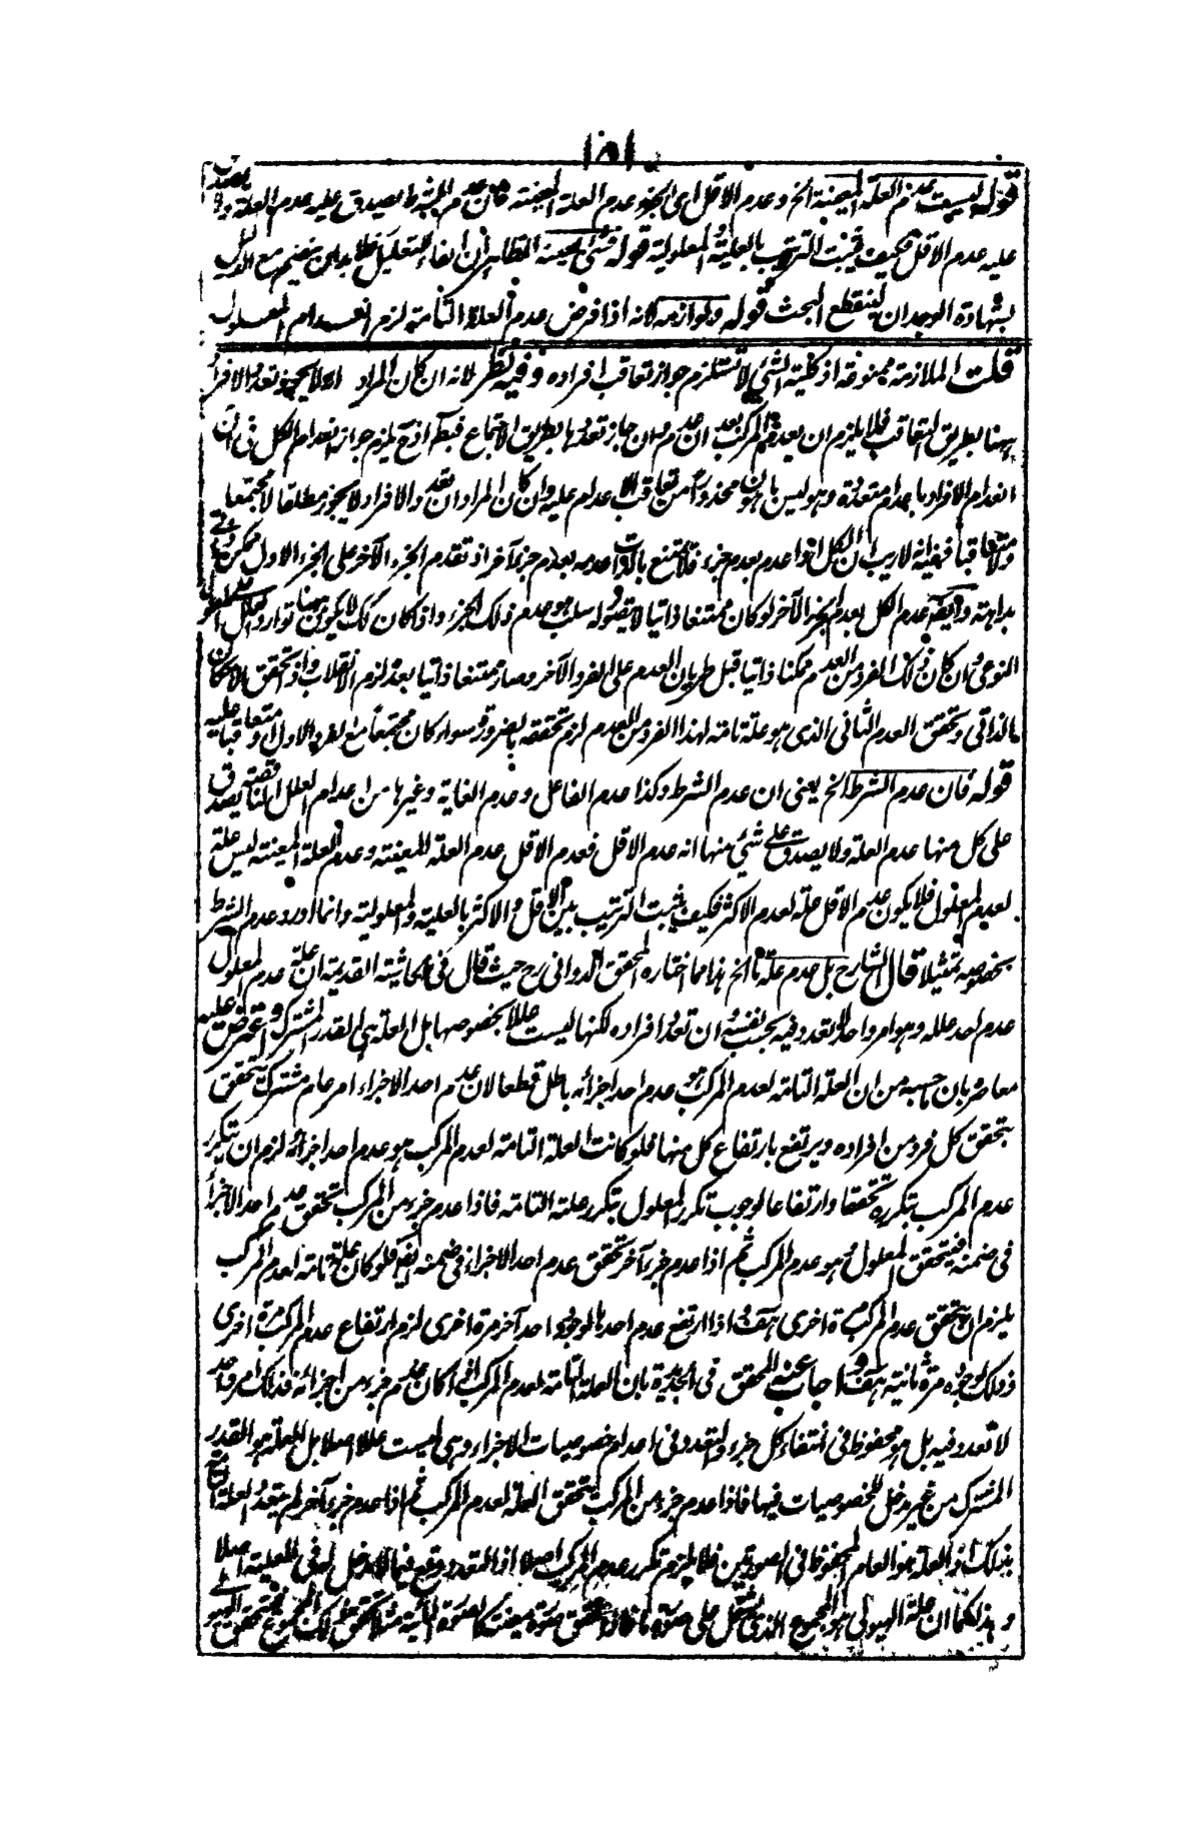 ١٥١
قوله ليست عدم العلة المعينة الخ وعدم الاقل اى الجزء عدم العلة المعينة فان عدم الشرط يصدق عليه عدم العلة ولا يصدق
عليه عدم الاقل فكيف يثبت الترتيب بالعلية والمعلولية قوله المعينة الظاهر ان الفاء للتعليل فلا بد من ضم مع الدليل
بشهادة الوجدان لينقطع البحث قوله ولوازمه لانه اذا فرض عدم العلة التامة لزم انعدام المعلول
قلت الملازمة ممنوعة اذ كلية الشئ لا تستلزم جواز تعاقب افراده وفيه نظر لانه ان كان المراد انه لا يجوز تعدد الافراد
ههنا بطريق التعاقب فلا يلزم ان يعدم المركب بعد ان عدم وان جاز تعددها بطريق الاجتماع اذ ح يلزم جواز انعدام الكل فى آن
انعدام الافراد باعدام متعددة وهو ليس باهون محذورا من تعاقب الاعدام عليه وان كان المراد ان تعدد الافراد لا يجوز مطلقا لا مجتمعا
ولا متعاقبا ففيه انه لا ريب ان الكل اذا عدم بعدم جزء فلا يمتنع بالذات عدمه بعدم جزء آخر اذ تقدم الجزء الآخر على الجزء الاول ممكن
بداهة عدم الكل بعدم الجزء الآخر لو كان ممتنعا ذاتيا لا يتصوله سلب هو عدم ذلك الجزء واذا كان كك لا يكون ههنا توارد العلل على المعلول
النوعى وان كان ذلك الفرد من العدم ممكنا ذاتيا قبل طريان العدم على الفرد الآخر وصار ممتنعا ذاتيا بعده لزم الانقلاب واذا تحقق الامكان
الذاتى وتحقق العدم الثانى الذى هو علة تامة لهذا الفرد من العدم لزم تحققه بالضرورة سواء كان مجتمعا مع الفرد الاول او متعاقبا عليه
قوله فان عدم الشرط الخ يعنى ان عدم الشرط وكذا عدم الفاعل وعدم الغاية وغيرها من اعدام العلل الناقصة يصدق
على كل منها عدم العلة ولا يصدق على شئ منها انه عدم الاقل فعدم الاقل عدم العلة المعينة وعدم العلة المعينة ليس علة
لعدم المعلول فلا يكون عدم الاقل علة لعدم الاكثر فكيف يثبت الترتيب بين الاقل والاكثر بالعلية والمعلولية وانما اورد عدم الشرط
بخصوصه تمثيلا قال الشارح بل عدم علة ما الخ هذا مما اختاره المحقق الدوانى رح حيث قال فى حاشيته القديمة ان علة عدم المعلول
عدم احد علله وهو امر واحد لا تعدد فيه بحسب نفسه وان تعدد افراده لكنها ليست عللا بخصوصها بل العلة هى القدر المشترك واعترض عليه
معاصره بان ما حسبه من ان العلة التامة لعدم المركب هو عدم احد اجزائه باطل قطعا لان عدم احد الاجزاء امر عام مشترك يتحقق
بتحقق كل فرد من افراده ويرتفع بارتفاع كل منها فلو كانت العلة التامة لعدم المركب هو عدم احد اجزائه لزم ان يتكرر
عدم المركب بتكرره تحققا وارتفاعا لوجوب تكرر المعلول بتكرر علته التامة فاذا عدم جزء من المركب تحقق عدم احد الاجزاء
فى ضمنه فيتحقق المعلول وهو عدم المركب ثم اذا عدم جزء آخر تحقق عدم احد الاجزاء فى ضمنه ايضا فلو كان علة تامة لعدم المركب
يلزم ان يتحقق عدم المركب مرة اخرى هف واذا ارتفع عدم احدها لوجود احد آخر مرة اخرى لزم ارتفاع عدم المركب مرة اخرى
وذلك لوجوده مرة ثانية هف واجاب عنه المحقق فى الجديدة بان العلة التامة لعدم المركب اذا كان عدم جزء من اجزائه فذلك امر واحد
لا تعدد فيه بل هو محفوظ فى انتفاء كل جزء والتعدد فى اعدام خصوصيات الاجزاء وهى ليست عللا اصلا بل العلة هو القدر
المشترك من غير مدخل للخصوصيات فيها فاذا عدم جزء من المركب يتحقق العلة لعدم المركب ثم اذا عدم جزء آخر لم يتعدد العلة
بذلك اذ العلة هو العام المحفوظ فى الصورتين فلا يلزم تكرر عدم المركب اصلا اذ التعدد وقع فيما لا دخل له فى العلية اصلا
وهذا كما ان علة الهيولى هو المجموع الذى يشتمل على صورة ما فاذا تحقق صورة معينة كالصورة المائية مثلا تحقق ذلك المجموع فيتحقق الهيولى